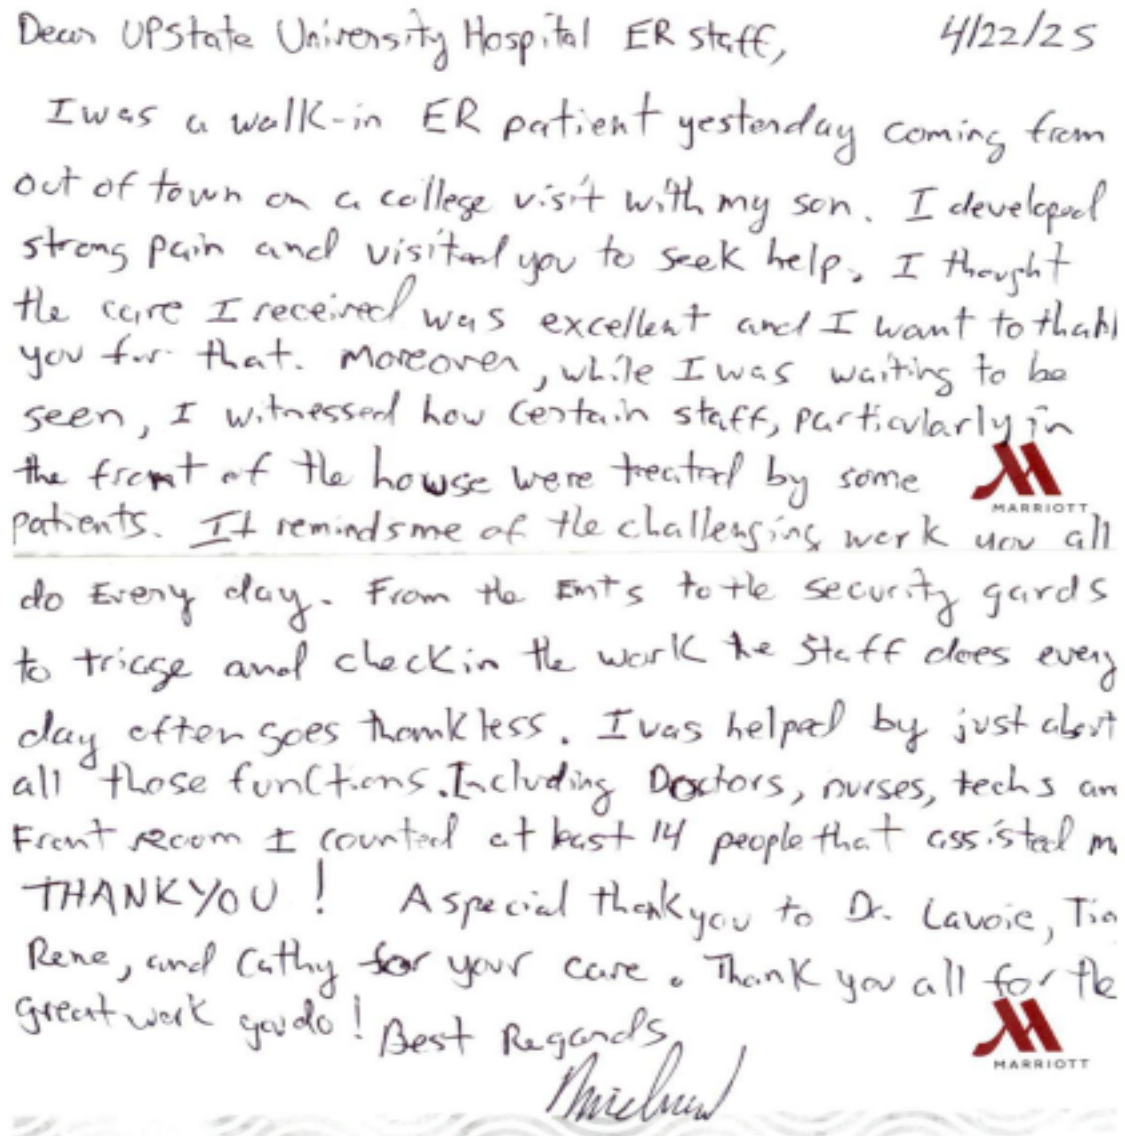 Dear UPState University Hospital ER staff, 4/22/25
I was a walk-in ER patient yesterday coming from
out of town on a college visit with my son. I developed
strong pain and visited you to seek help. I thought
the care I received was excellent and I want to thank
you for that. Moreover, while I was waiting to be
seen, I witnessed how certain staff, particularly in
the front of the howse were treated by some
MARRIOTT
patients. It reminds me of the challenging work you all
do Every day. From the EMTs to the security gards
to triage and check in the work the staff does every
day often goes thankless. I was helped by just about
all those functions. Including Doctors, nurses, techs an
Front room I counted at least 14 people that assisted m
THANK YOU! A special thank you to Dr. Lavoie, Tia
Rene, and Cathy for your care. Thank you all for the
great work you do! Best Regards
MARRIOTT